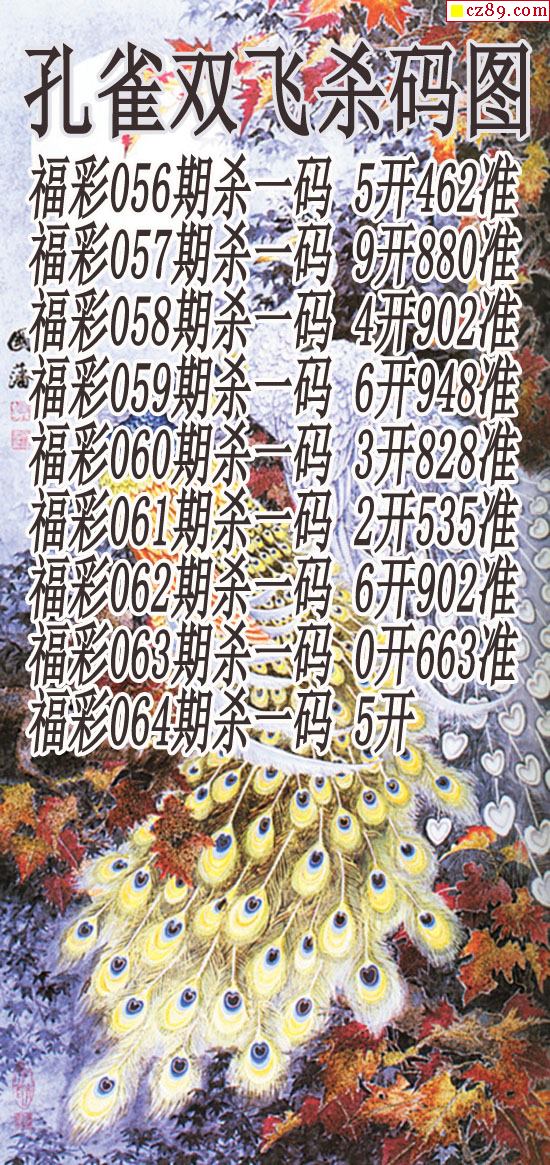 cz89.com
孔雀双飞杀码图
福彩056期杀一码 5开462准
福彩057期杀一码 9开880准
福彩058期杀一码 4开902准
福彩059期杀一码 6开948准
福彩060期杀一码 3开828准
福彩061期杀一码 2开535准
福彩062期杀一码 6开902准
福彩063期杀一码 0开663准
福彩064期杀一码 5开